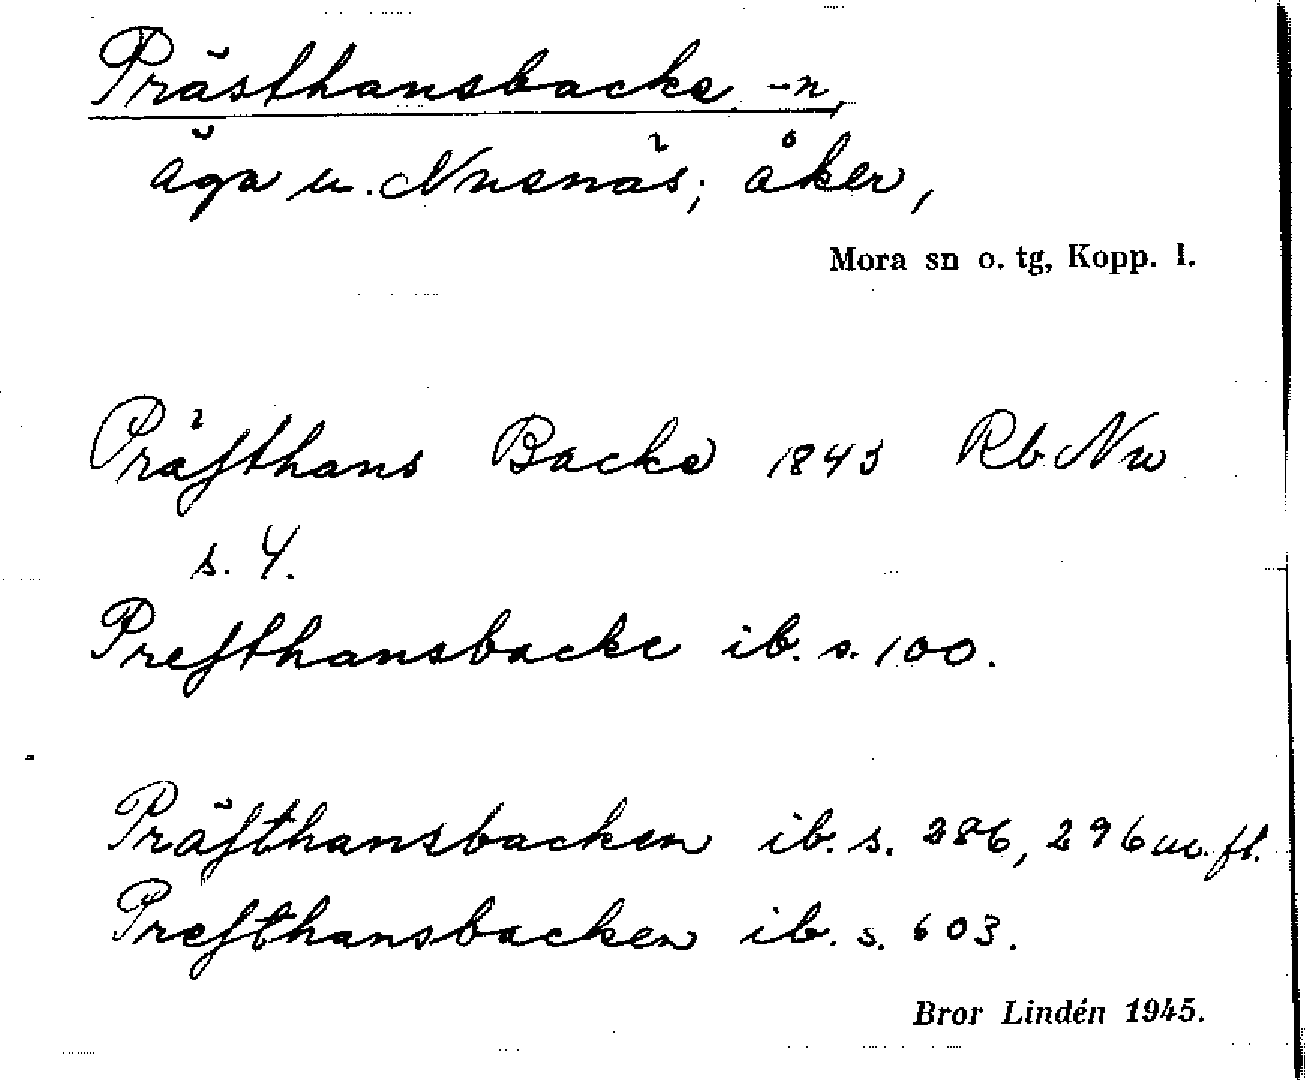 Prästhansbacke -n,
äga u. Nusnäs; åker,
Mora sn o. tg, Kopp. l.
Präſthans Backe 1845 Rb Nu
s. 4.
Preſthansbacke ib. s. 100.
Präſthansbacken ib. s. 286, 296 m. fl.
Preſthansbacken ib. s. 603.
Bror Lindén 1945.